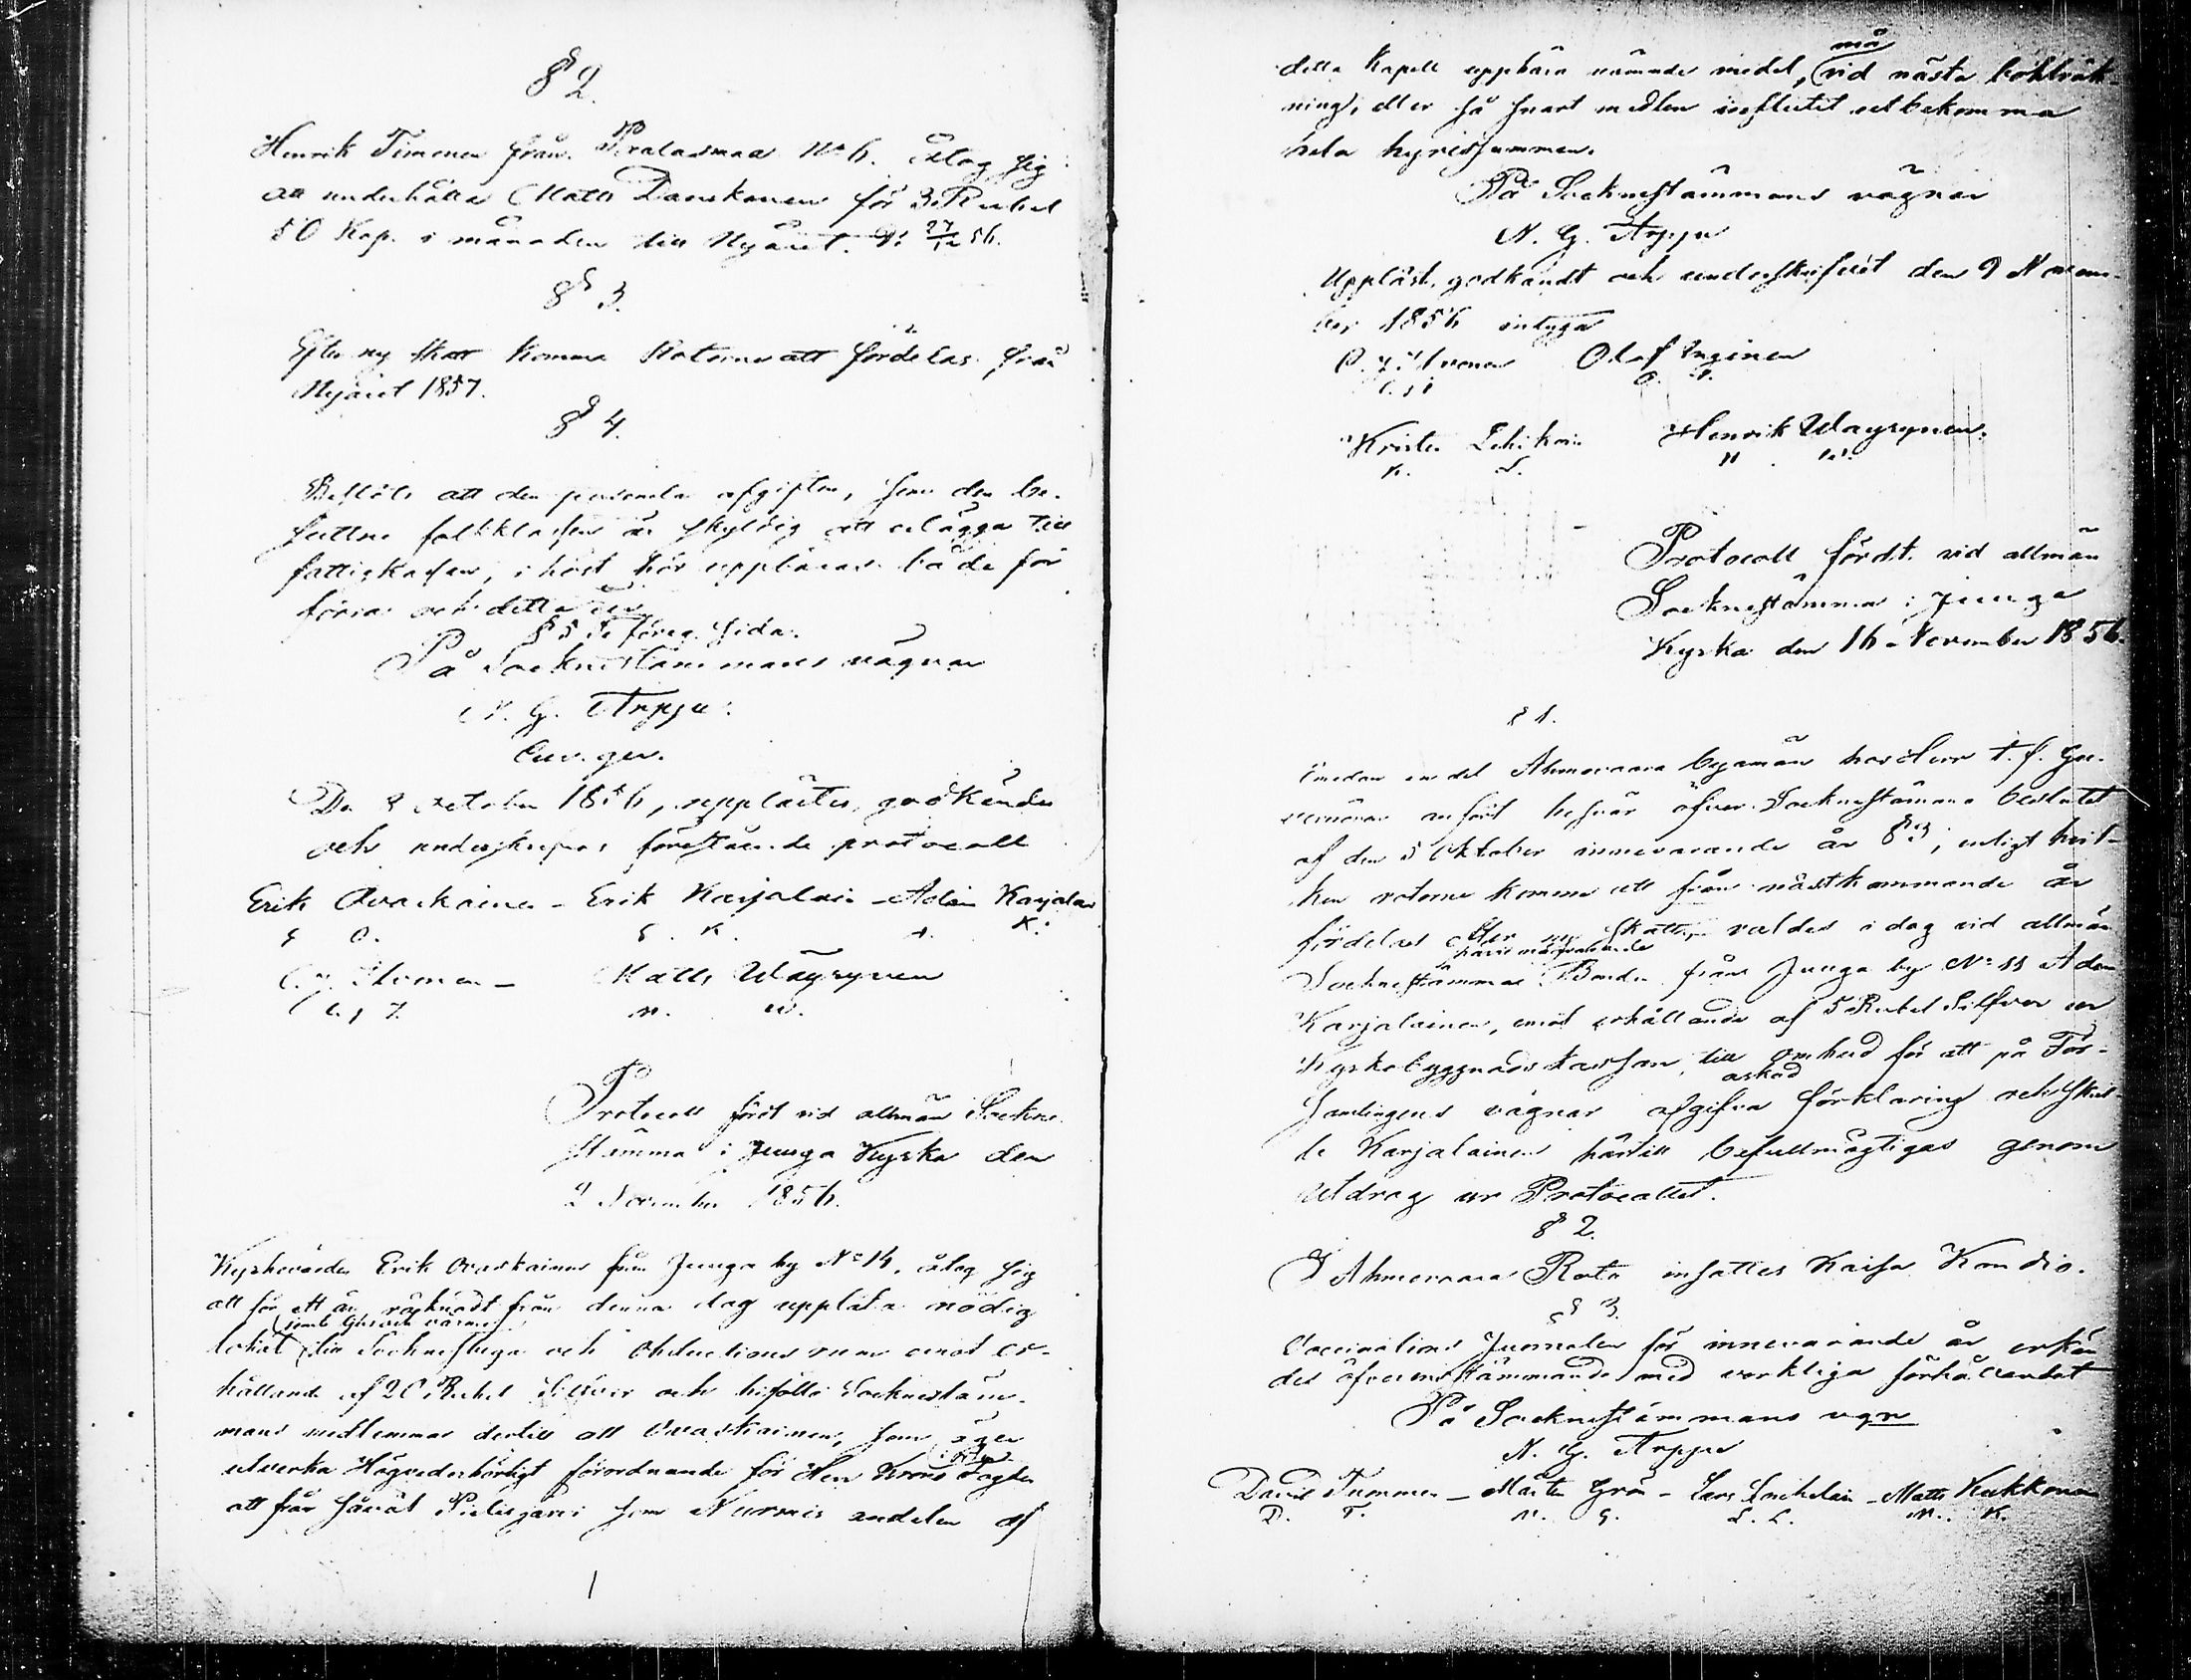 § 2.
Henrik Timonen från Piralasmaa No 6. åtog sig
att underhålla Matts Danskanen för 3 Rubel
50 Kop. i månaden till Nyåret. D: 27/12 56.
§ 3.
Efter ny skatt komma Roterna att fördelas från
Nyåret 1857.
§ 4.
Beslöts att den personela afgiften, som den be-
suttne folkklassen är skyldig att erlägga till
fattigkassan, i höst bör uppbäras både för
förra och detta år
§ 5 Se föreg. sida.
På Socknestämmans vägnar
N. G. Arppe.
Cur. ger.
Den 8 October 1856, upplästes, godkändes
och underskrefs förestående protocoll
Erik Ovaskainen - Erik Karjalain - Adam Karjalain
E O. E. K. A. K.
C. J. Ikonen - Matts Wäyrynen
C. J. I. M. W.
Protocoll fördt vid allmän Sockne-
stämma i Juuga Kyrka den
2 November 1856.
Kyrkovärden Erik Ovaskainen från Juuga by No 14, åtog sig
att för ett år, räknadt från denna dag upplåta nödig
samt ljus och värme
lokal till Socknestuga och Obductions rum emot er-
hållande af 20 Rubel Silfver och biföllo Socknestäm-
mans medlemmar dertill att Ovaskainen, som äger
utverka Högvederbörligt förordnande för Herr Krono Fogden
att från såväl Pielisjärvi som Nurmis andelen af
detta Kapell uppbära nämnde medel, må vid nästa bokräk-
ning, eller så snart medlen influtit utbekomma
hela hyressumman.
På Socknestämmans vägnar
N. G. Arppe
Uppläst, godkändt och underskrifvit den 9 Novem-
ber 1856 intyga
C. J. Ikonen Olof Turinen
C. J. I. O. T.
Krister Lehikoin Henrik Wäyrynen.
K. L. H. W.
Protocoll fördt vid allmän
Socknestämma i Juuga
Kyrka den 16 November 1856.
§ 1.
Emedan en del Ahmovaara byamän hos Herr t. f. Gu-
vernören anfört besvär öfver Socknestämmo beslutet
af den 5 Oktober innevarande år § 3, enligt hvil-
ken roterne komma att från nästkommande år
fördelas efter ny skatt, valdes i dag vid allmän
Socknestämma härvid närvarande Bonden från Juuga by No 11 Adam
Karjalainen, emot erhållande af 5 Rubel Silfver ur
Kyrkobyggnadskassan, till ombud för att på För-
samlingens vägnar äskad afgifva förklaring och skul-
le Karjalainen härtill befullmägtigas genom
utdrag ur Protocollet.
§ 2.
I Ahmovaara Rote insattes Kaisa Kondio.
§ 3.
Vaccinations Journalen för innevarande år erkän-
des öfverensstämmande med verkliga förhållandet
På Socknestämmans vgr
N. G. Arppe
David Tummen - Mårten Grön - Lars Lonkilain - Matts Kukkonen
D. T. M. G. L. L. M. K.